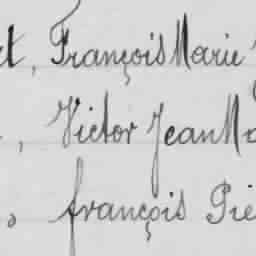 t, François Marie
, Victor Jean Ma
, françois Pie